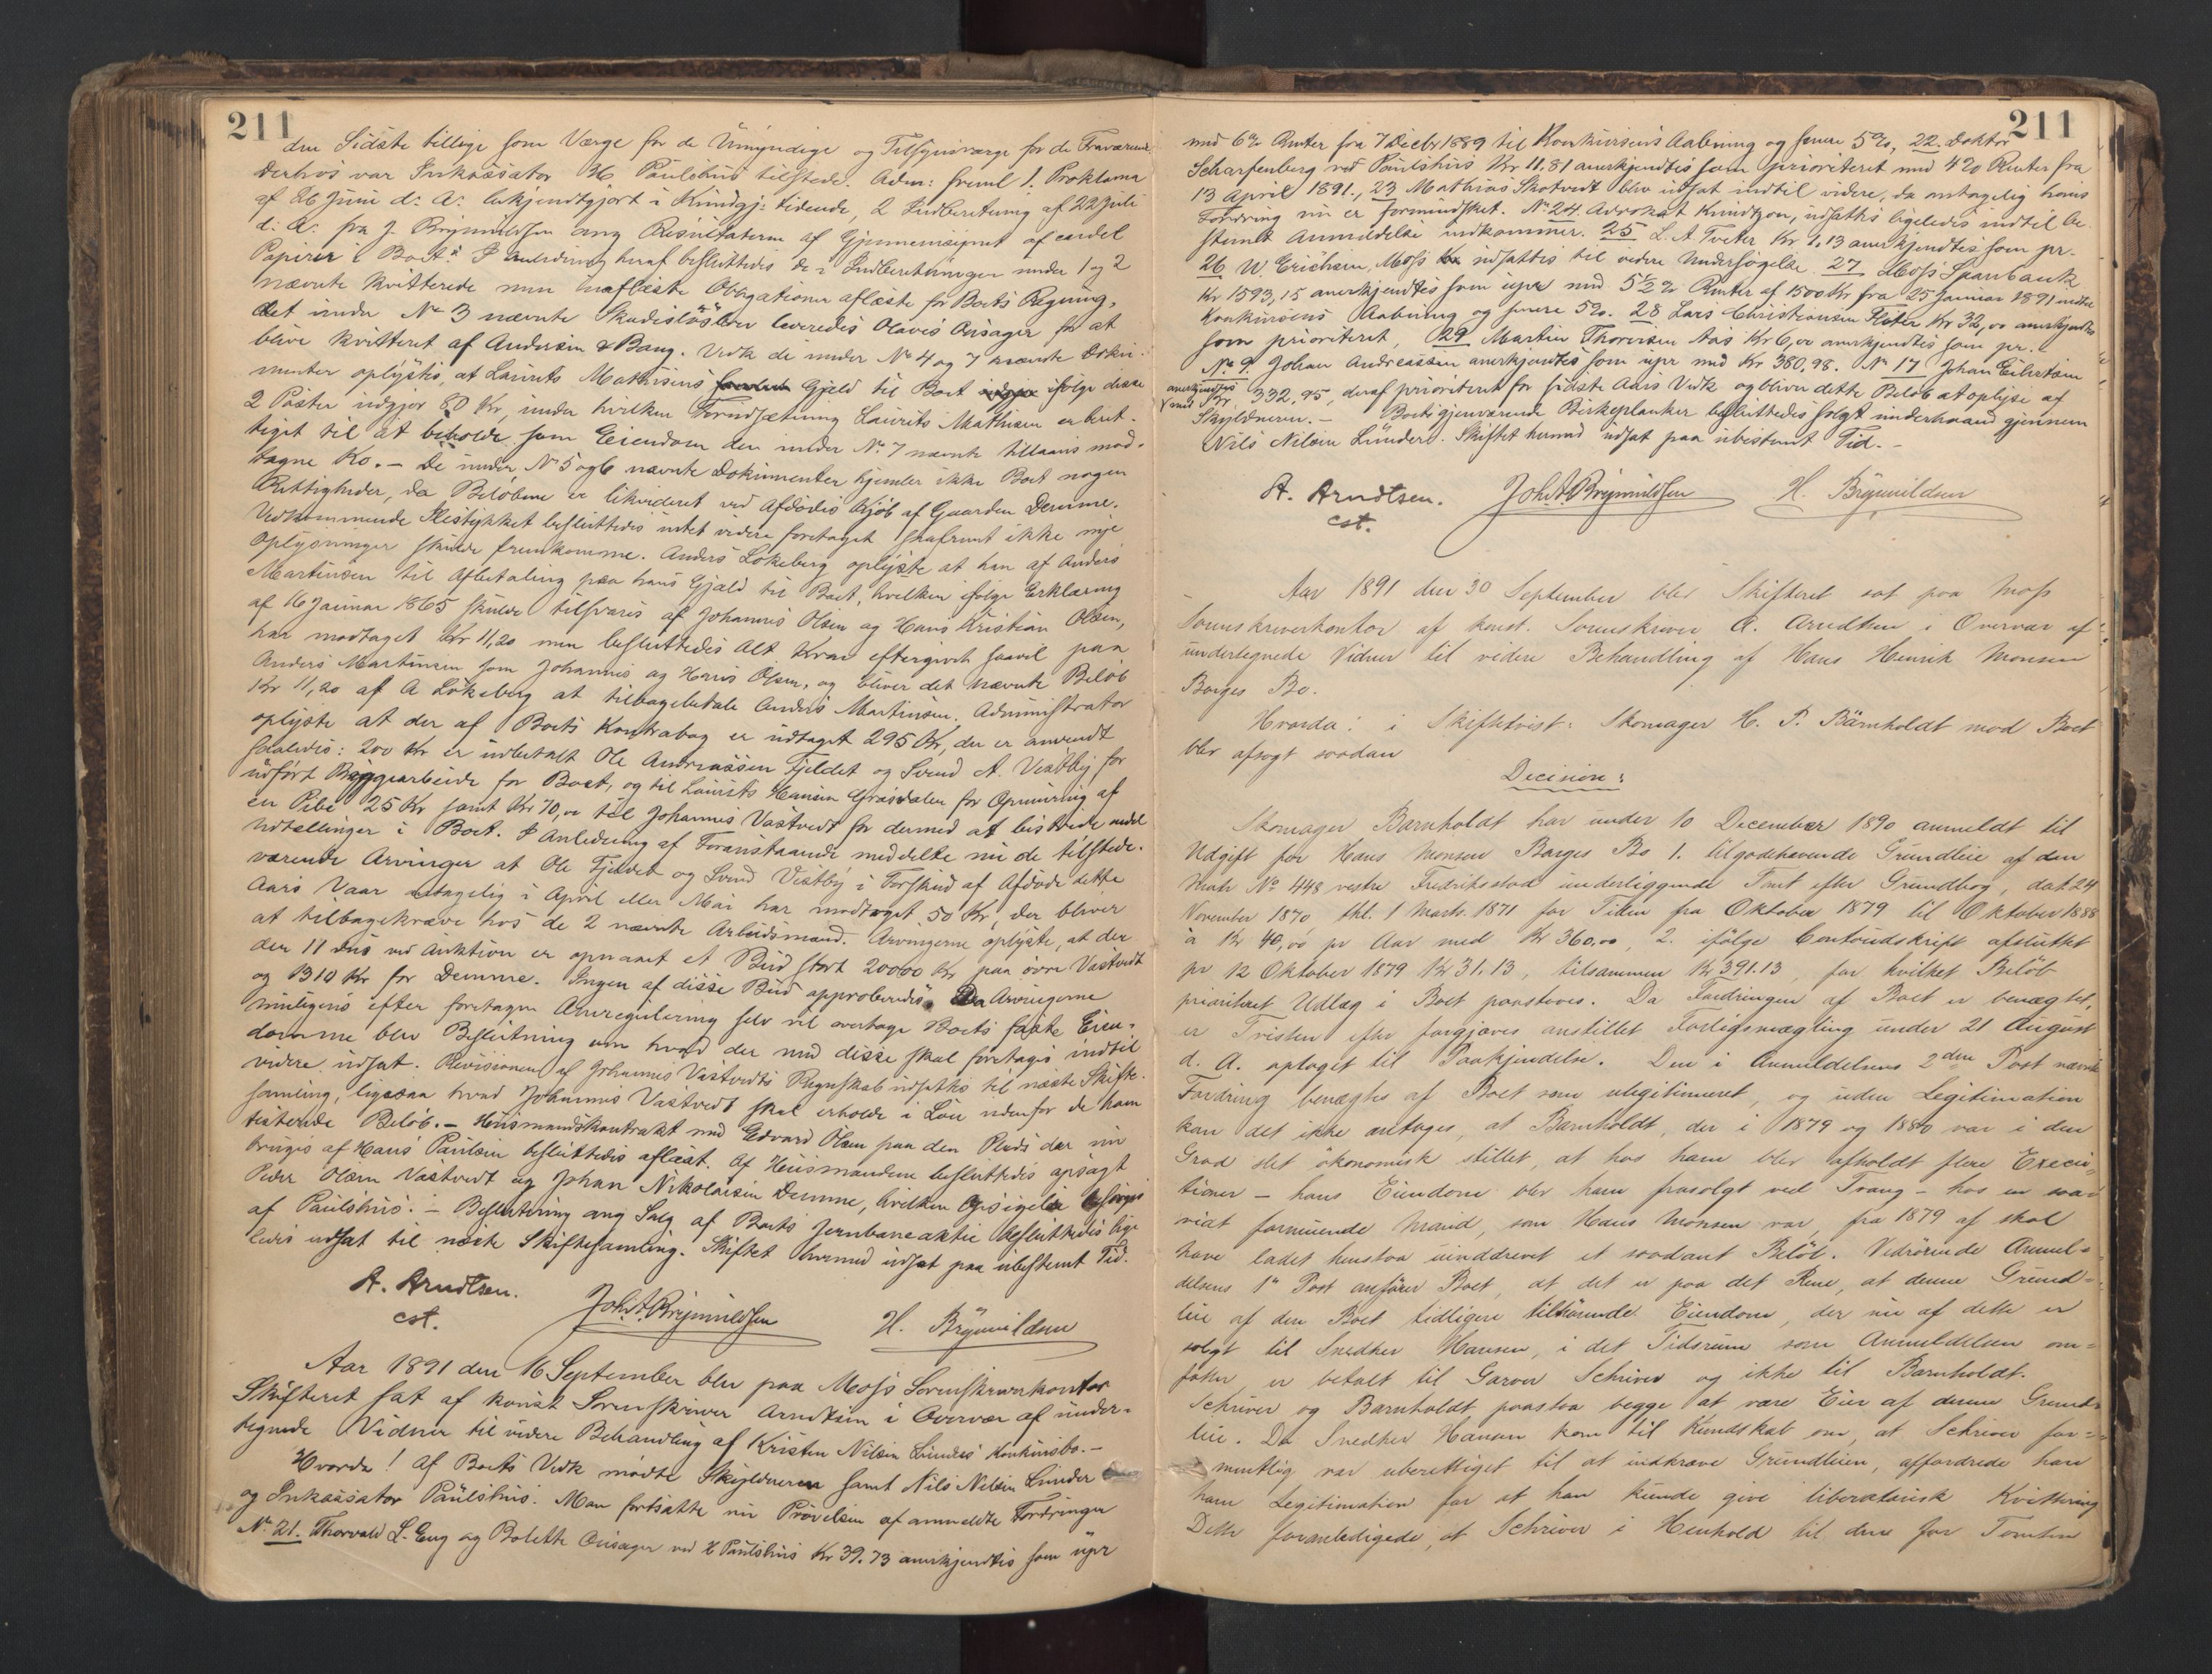 211
den Sidste tillige som Værge for de Umyndige og Tilsynsværge for de Fraværende
Derhos var Inkassator H Paulshus tilstede. Adm: freml 1. Proklama
af 26 Juni d: A: bekjendtgjort i Kundgj: tidende, 2 Indberetning af 22 Juli
d: A: fra J. Brynildsen ang Resultaterne af Gjennemsynet af endel
Papirer i Boet. I Anledning heraf besluttedes de i Indberetningen under 1 og 2
nævnte kvitterede men uaflæste Obligationer aflæste for Boets Regning,
det under No 3 nævnte Skadesløsbrev leveredes Olaves Onsager for at
blive kvitteret af Andersen & Bang. Vedk de under No 4 og 7 nævnte Doku-
menter oplystes, at Laurits Mathisens Gjæld til Boet ifølge disse
2 Poster udgjør 80 Kr, under hvilken Forudsætning Laurits Mathisen er beret-
tiget til at beholde som Eiendom den under No 7 nævnte tillaans mod-
tagne Ko. – De under No 5 og 6 nævnte Dokumenter hjemler ikke Boet nogen
Rettigheder, da Beløbene er likvideret ved Afdødes Kjøb af Gaarden Demme.
Vedkommende Slestykket besluttedes intet videre foretaget saafremt ikke nye
Oplysninger skulde fremkomme. Anders Løkeberg oplyste at han af Anders
Martinsen til Afbetaling paa hans Gjæld til Boet, hvilken ifølge Erklæring
af 16 Januar 1865 skulde tilsvares af Johannes Olsen og Hans Kristian Olsen,
har modtaget Kr 11,20 men besluttedes alt Krav eftergivet saavel paa
Anders Martinsen som Johannes og Hans Olsen, og bliver det nævnte Beløb
Kr 11,20 af A Løkeberg at tilbagebetale Anders Martinsen. Administrator
oplyste at der af Boets Kontrabog er udtaget 295 Kr, der er anvendt
saaledes: 200 Kr er udbetalt Ole Andreassen Fjeldet og Svend A. Vestby for
udført Byggearbeide for Boet, og til Laurits Hansen Græsdalen for Opmuring af
en Pibe 25 Kr samt Kr 70,00 til Johannes Vastvedt for dermed at bestride endel
Udtællinger i Boet. I Anledning af Foranstaaende meddelte nu de tilstede-
værende Arvinger at Ole Fjeldet og Svend Vestby i Forskud af Afdøde dette
Aars Vaar antagelig i April eller Mai har modtaget 50 Kr, der bliver
at tilbagekræve hos de 2 nævnte Arbeidsmænd. Arvingerne oplyste, at der
den 11 ds ved Auktion er opnaaet et Bud stort 20000 Kr paa øvre Vastvedt
og 1310 Kr for Demme. Ingen af disse Bud approberedes. Da Arvingerne
muligens efter foretagen Arveregulering selv vil overtage Boets faste Eien-
domme blev Beslutning om hvad der med disse skal foretages indtil
videre udsat. Revisionen af Johannes Vastvedts Regnskab udsattes til næste Skifte-
samling, ligesaa hvad Johannes Vastvedt skal erholde i Løn udenfor de ham
testerede Beløb. – Husmandskontrakt med Edvard Olsen paa den Plads der nu
bruges af Hans Paulsen besluttedes aflæst. Af Husmændene besluttedes opsagt
Peder Olsen Vastvedt og Johan Nikolaisen Demme, hvilken Opsigelse besørges
af Paulshus. – Beslutning ang Salg af Boets Jernbaneaktie besluttedes lige
ledes udsat til næste Skiftesamling. Skiftet hermed udsat paa ubestemt Tid.
A. Arndtsen. Joh. A. Brynildsen H. Brynildsen
cst.
Aar 1891 den 16 September blev paa Moss Sorenskriverkontor
Skifteret sat af konst Sorenskriver Arndtsen i Overvær af under-
tegnede Vidner til videre Behandling af Kristen Nilsen Lunders Konkursbo. –
Hvorda! Af Boets Vedk mødte Skyldneren samt Nils Nilsen Lunder
og Inkassator Paulshus. Man fortsatte nu Prøvelsen af anmeldte Fordringer
No 21. Thorvald L. Eng og Bolette Onsager ved H Paulshus Kr 39.73 anerkjendtes som upr
211
med 6% Renter fra 7 Decbr 1889 til Konkursens Aabning og senere 5%, 22. Doktor
Scharfenberg ved Paulshus Kr 11.81 anerkjendtes som prioriteret med 4% Renter fra
13 April 1891., 23 Mathias Skotvedt blev udsat indtil videre, da antagelig hans
Fordring nu er formindsket. No 24. Advokat Knudtzon, udsattes ligeledes indtil be-
stemt Anmeldelse indkommer. 25 L. A Tveter Kr 2,13 anerkjendtes som pr.
26 W. Erichsen, Moss udsattes til videre Undersøgelse. 27 Moss Sparebank
Kr 1593,15 anerkjendtes som upr med 5½% Renter af 1500 Kr fra 25 Januar 1891 indtil
Konkursens Aabning og senere 5%. 28 Lars Christiansen Sæter Kr 32,00 anerkjendtes
som prioriteret, 29 Martin Thorersen Aas Kr 6,00 anerkjendtes som pr. –
No 9. Johan Andreassen anerkjendtes som upr med Kr 380,98. No 17 Johan Eilertsen
anerkjendtes med Kr. 332,95, deraf prioriteret for sidste Aars Vedk og bliver dette Beløb at oplyse af
Skyldneren. – Boets gjenværende Birkeplanker besluttedes solgt underhaand gjennem
Nils Nilsen Lunder. Skiftet hermed udsat paa ubestemt Tid. –
A. Arndtsen. Joh. A. Brynildsen H. Brynildsen
cst.
Aar 1891 den 30 September blev Skifteret sat paa Moss
Sorenskriverkontor af konst. Sorenskriver A. Arndtsen i Overvær af
undertegnede Vidner til videre Behandling af Hans Henrik Monsen
Borges Bo.
Hvorda: i Skiftetvist: Skomager H. P. Bärnholdt mod Boet
blev afsagt saadan
Decision:
Skomager Barnholdt har under 10 December 1890 anmeldt til
Udgift for Hans Monsen Borges Bo 1. tilgodehavende Grundleie af den
Matr No 448 vestre Fredriksstad underliggende Tomt efter Grundbog, dat 24
November 1870 thl. 1 Marts 1871 for Tiden fra Oktober 1879 til Oktober 1888
à Kr 40,00 pr Aar med Kr 360,00, 2. ifølge Contoudskrift afsluttet
pr 12 Oktober 1879 Kr 31.13, tilsammen Kr 391.13, for hvilket Beløb
prioriteret Udlæg i Boet paastaaes. Da Fordringen af Boet er benægtet,
er Tvisten efter forgjæves anstillet Forligsmægling under 21 August
d. A. optaget til Paakjendelse. Den i Anmeldelsens 2den Post nævnte
Fordring benægtes af Boet som ulegitimeret, og uden Legitimation
kan det ikke antages, at Barnholdt, der i 1879 og 1880 var i den
Grad slet økonomisk stillet, at hos ham blev afholdt flere Execu-
tioner – hans Eiendom blev ham frasolgt ved Tvang – hos en saa
vidt formuende Mand, som Hans Monsen var, fra 1879 af skal
have ladet henstaa uinddrevet et saadant Beløb. Vedrørende Anmel-
delsens 1ste Post anfører Boet, at det er paa det Rene, at denne Grund-
leie af den Boet tidligere tilhørende Eiendom, der nu af dette er
solgt til Snedker Hansen, i det Tidsrum som Anmeldelsen om-
fatter er betalt til Garver Schriver og ikke til Barnholdt.
Schriver og Barnholdt paastaa begge at være Eier af denne Grund-
leie. Da Snedker Hansen kom til Kundskab om, at Schriver for-
mentlig var uberettiget til at indkræve Grundleien, affordrede han
ham Legitimation for at han kunde give liberatorisk Kvittering
Dette foranledigede, at Schriver i Henhold til den for Tomten